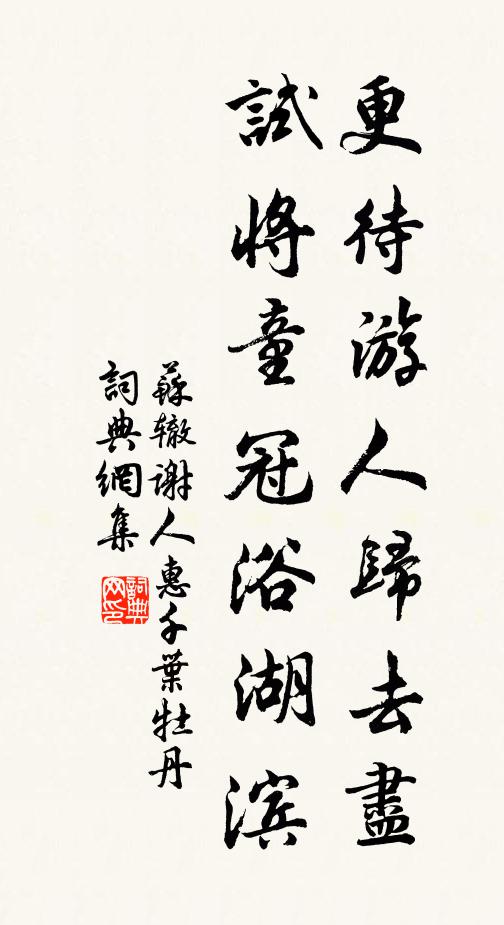 更待游人歸去盡
試將童冠浴湖滨
蘇辙谢人惠千葉牡丹
詞典網集
詞典网印